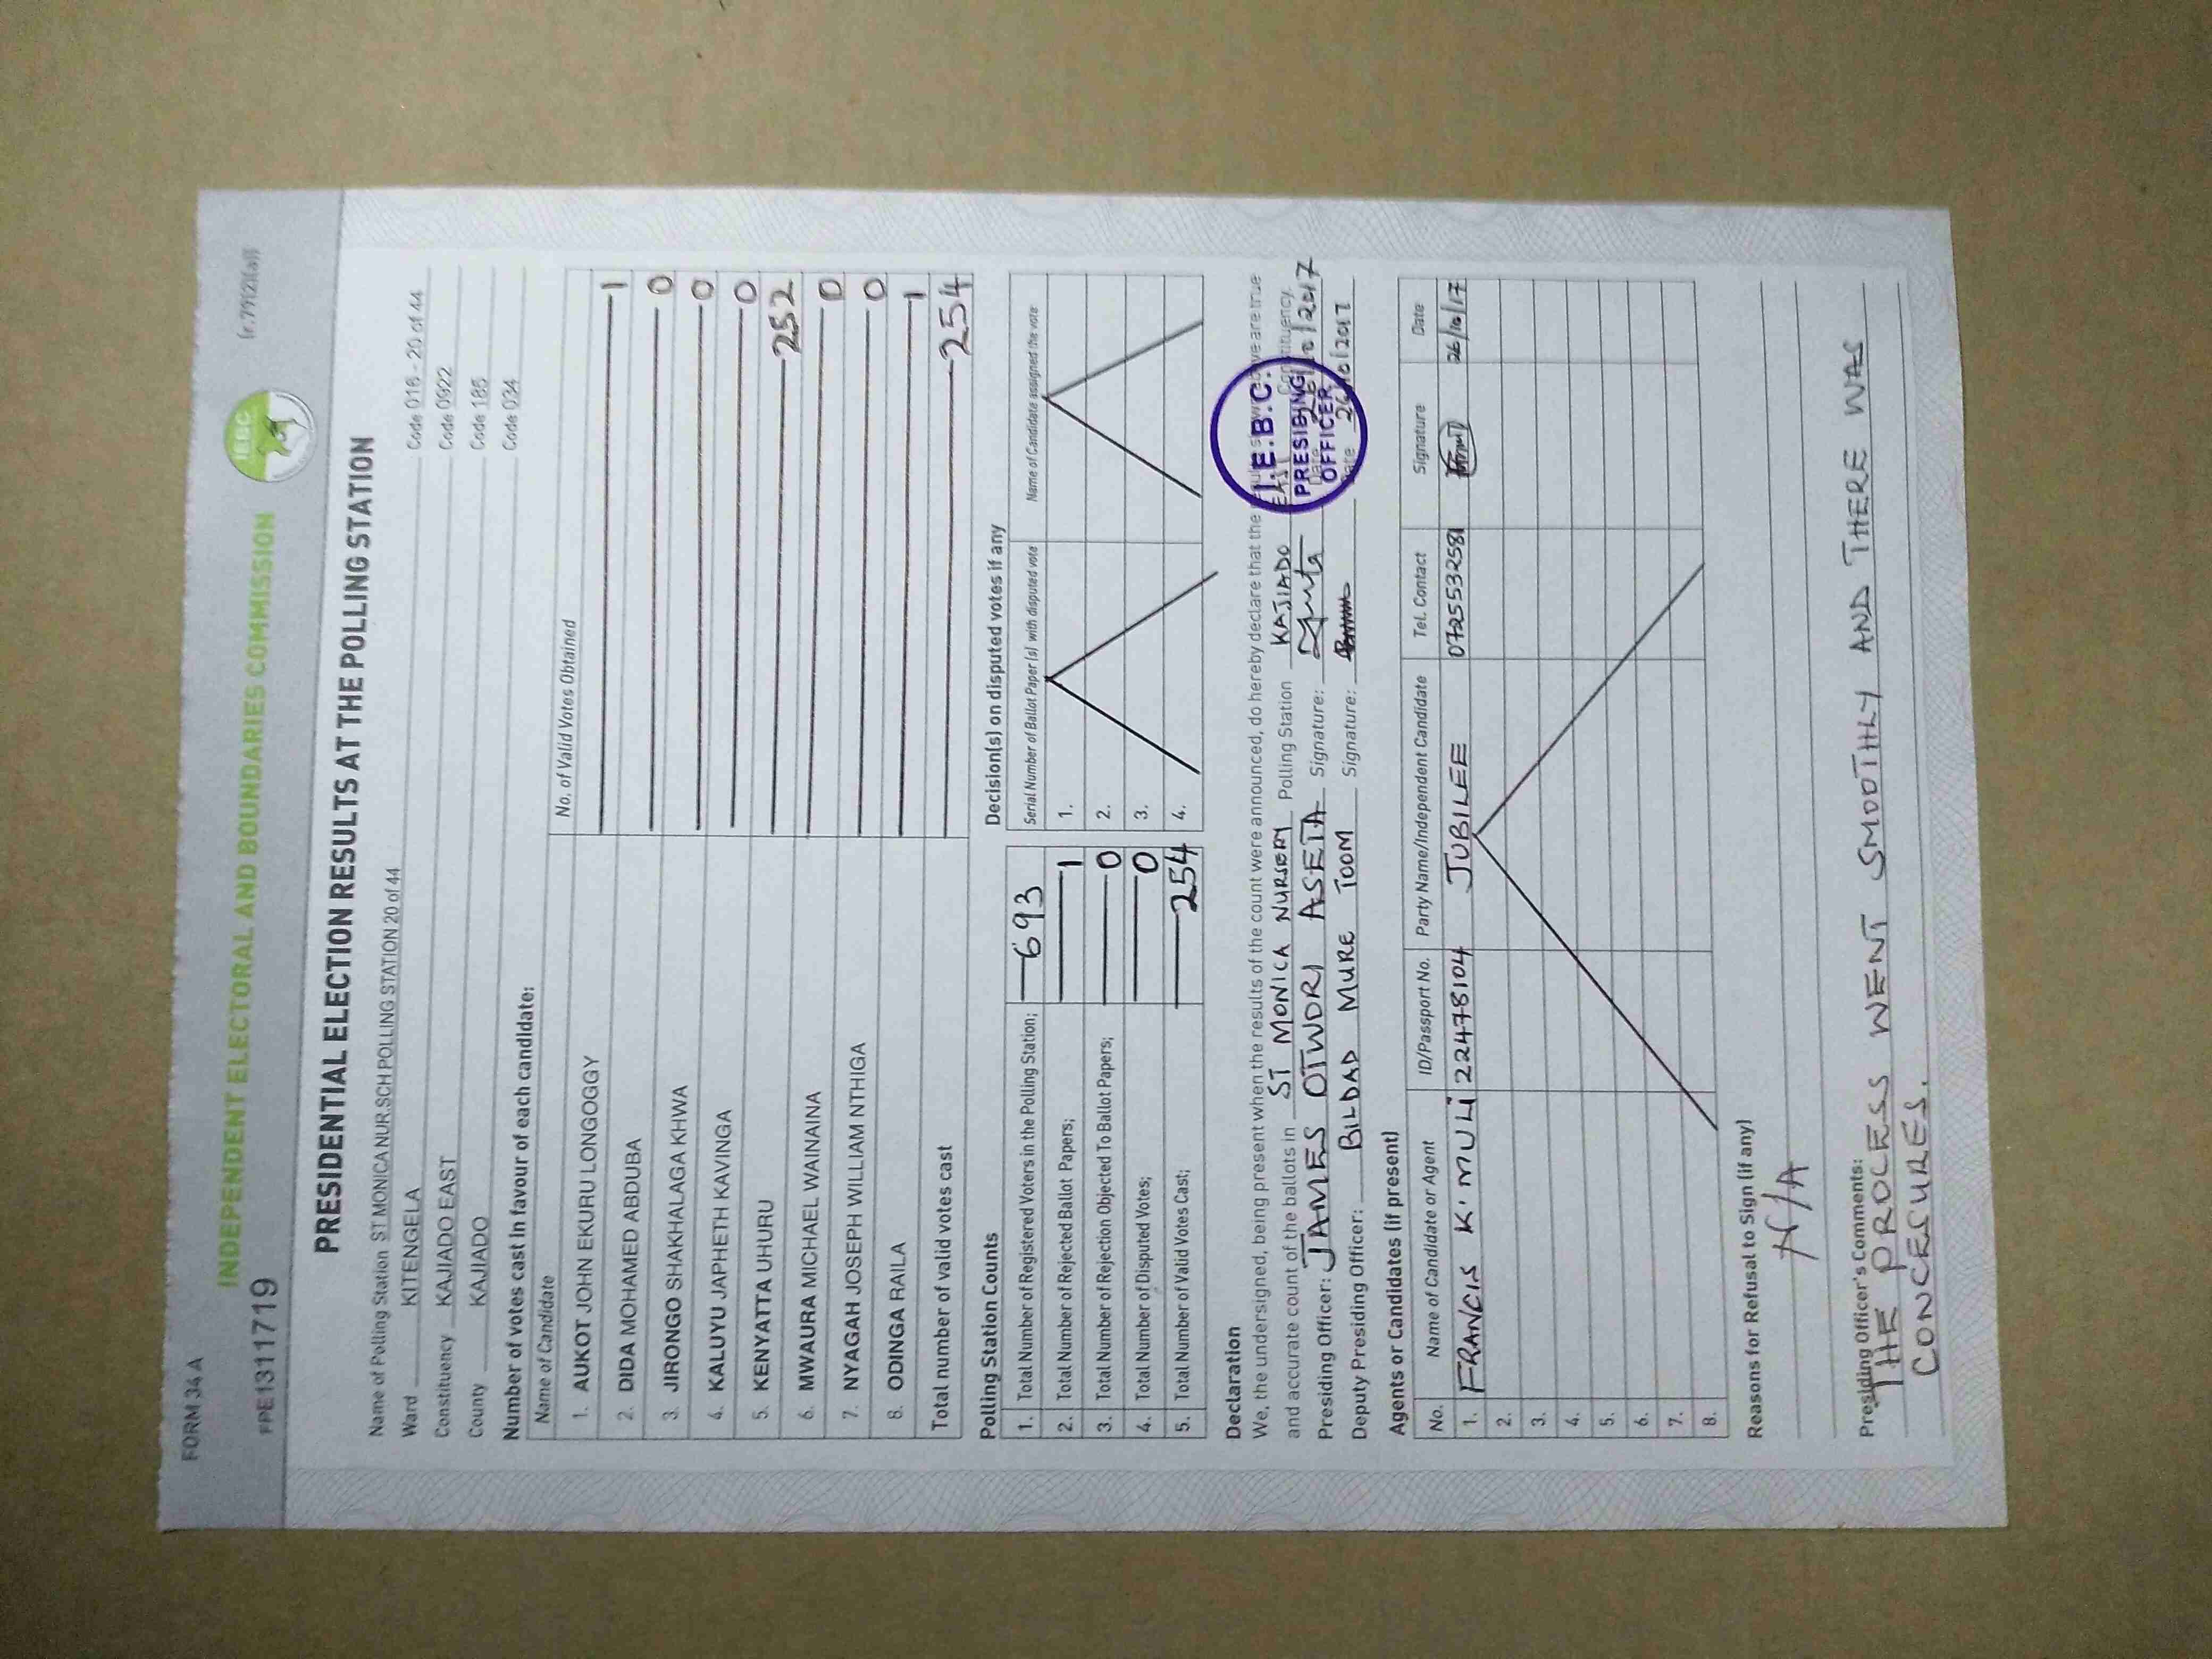 FORM 34 A
(r.79(2)(a))
IEBC
INDEPENDENT ELECTORAL AND BOUNDARIES COMMISSION
FPE1311719
PRESIDENTIAL ELECTION RESULTS AT THE POLLING STATION
Name of Polling Station ST MONICA NUR.SCH POLLING STATION 20 of 44 Code 016 - 20 of 44
Ward KITENGELA Code 0922
Constituency KAJIADO EAST Code 185
County KAJIADO Code 034
Number of votes cast in favour of each candidate:
Name of Candidate No. of Valid Votes Obtained
1. AUKOT JOHN EKURU LONGOGGY 1
2. DIDA MOHAMED ABDUBA 0
3. JIRONGO SHAKHALAGA KHWA 0
4. KALUYU JAPHETH KAVINGA 0
5. KENYATTA UHURU 252
6. MWAURA MICHAEL WAINAINA 0
7. NYAGAH JOSEPH WILLIAM NTHIGA 0
8. ODINGA RAILA 1
Total number of valid votes cast 254
Polling Station Counts
1. Total Number of Registered Voters in the Polling Station; 693
2. Total Number of Rejected Ballot Papers; 1
3. Total Number of Rejection Objected To Ballot Papers; 0
4. Total Number of Disputed Votes; 0
5. Total Number of Valid Votes Cast; 254
Decision(s) on disputed votes if any
Serial Number of Ballot Paper (s) with disputed vote Name of Candidate assigned the vote
1.
2.
3.
4.
Declaration
We, the undersigned, being present when the results of the count were announced, do hereby declare that the results shown above are true
and accurate count of the ballots in ST MONICA NURSERY Polling Station KAJIADO EAST Constituency.
Presiding Officer: JAMES OTWORI ASETA Signature: Date 26/10/2017
Deputy Presiding Officer: BILDAD MURE TOOM Signature: Date 26/10/2017
I.E.B.C.
PRESIDING
OFFICER
Agents or Candidates (if present)
No. Name of Candidate or Agent ID/Passport No. Party Name/Independent Candidate Tel. Contact Signature Date
1. FRANCIS K. MULI 22478104 JUBILEE 0725532581 26/10/17
2.
3.
4.
5.
6.
7.
8.
Reasons for Refusal to Sign (if any)
N/A
Presiding Officer's Comments:
THE PROCESS WENT SMOOTHLY AND THERE WAS
CONCESURES.